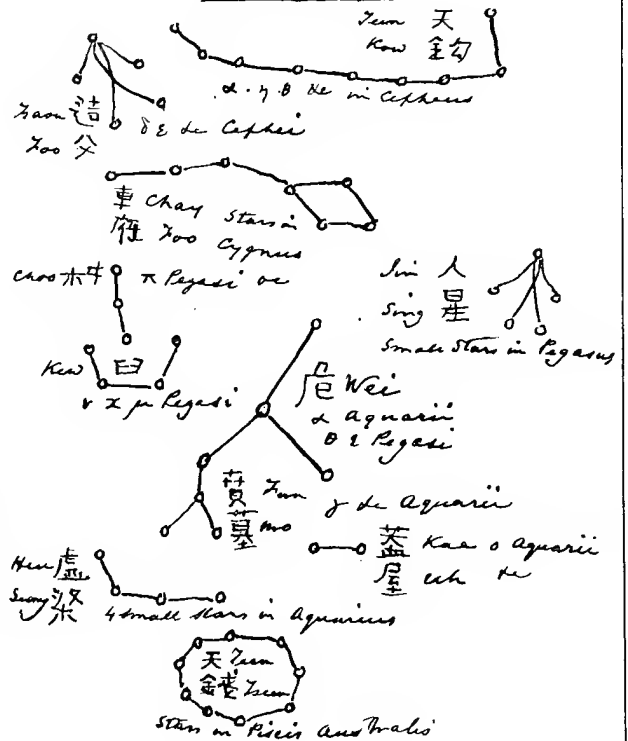 Teen 天
Kow 鈎
α. η θ &c in Cepheus
造
Foo 父
δ ε &c Cephei
車 Chay Stars in
府 Foo Cygnus
Choo 杵 π Pegasi &c
Jin 人
Sing 星
Small Stars in Pegasus
Kew 臼
Pegasi
危 Wei
α Aquarii
θ ε Pegasi
墳 Fun
墓 Mo
γ &c Aquarii
蓋 Kae ο Aquarii
屋 Uh &c
Heu 虛
Leang 梁
4 small stars in Aquarius
天 Teen
錢 Tseen
Stars in Piscis Australis